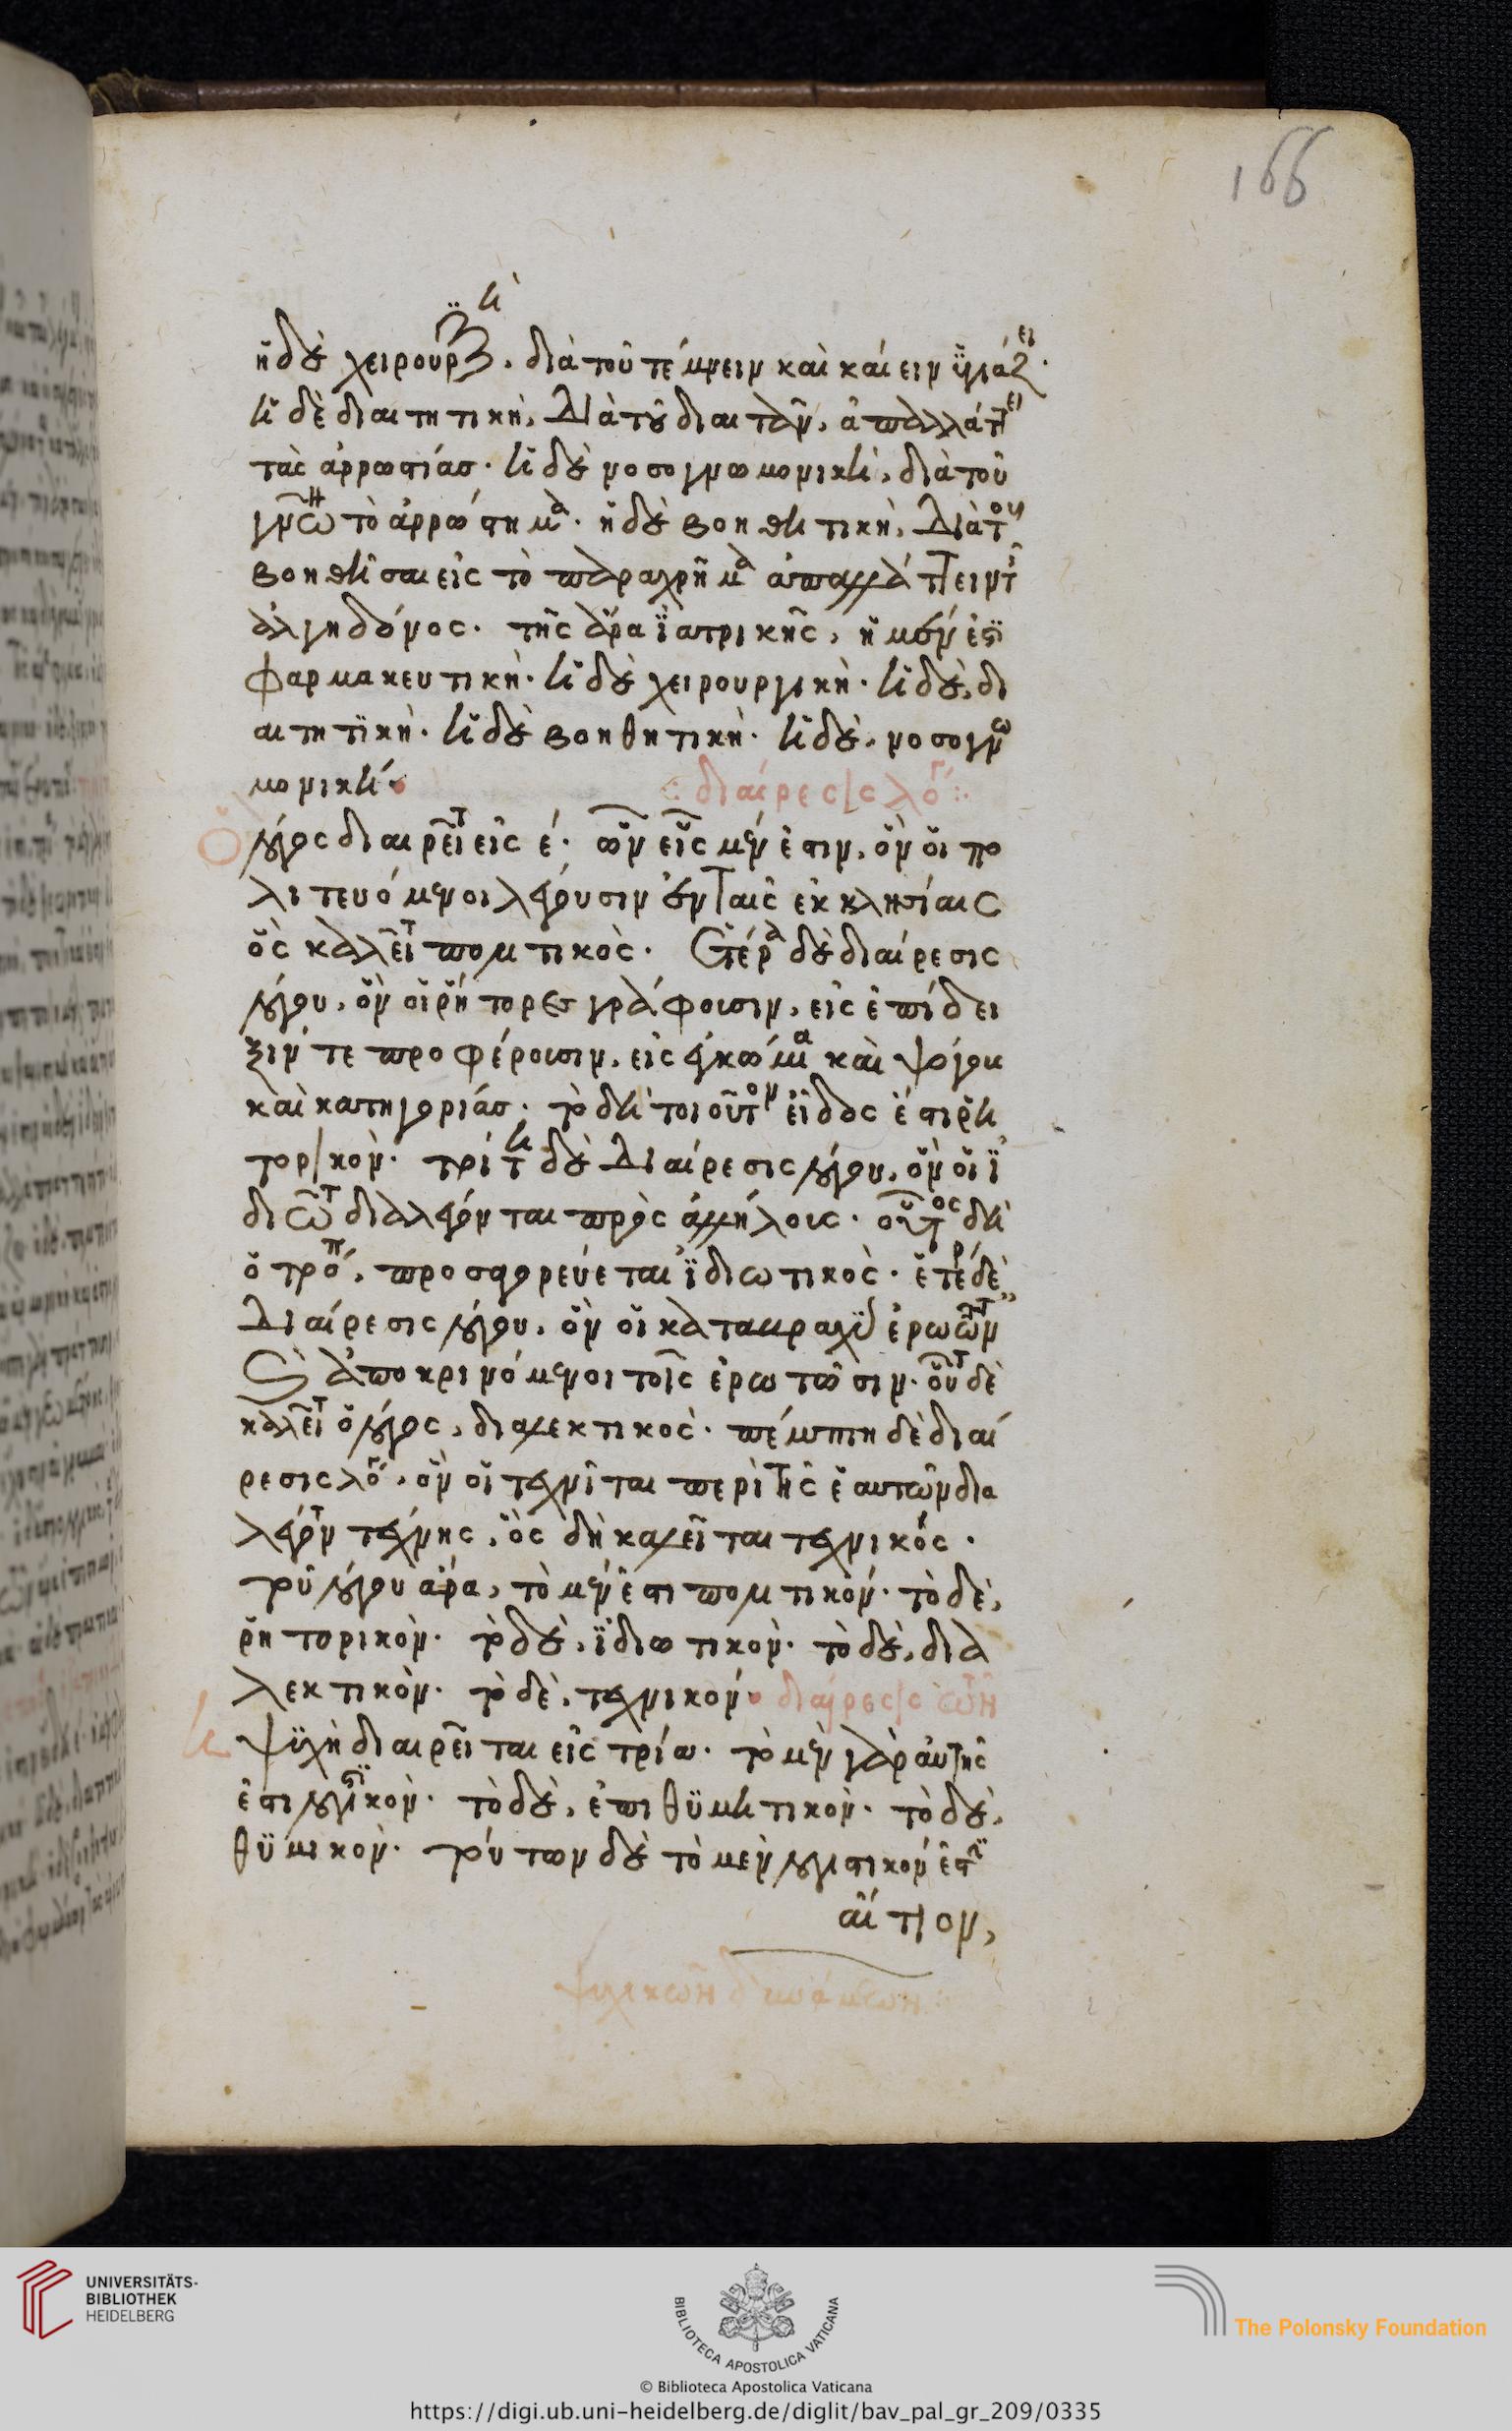 166
ἡ δὲ χειρουργικὴ, διὰ τοῦ τέμνειν καὶ καίειν ὑγιάζει·
ἡ δὲ διαιτητικὴ, διὰ τοῦ διαιτᾶν, ἀπαλλάττει
τὰς ἀρρωστίας· ἡ δὲ νοσογνωμονικὴ, διὰ τοῦ
γνῶναι τὸ ἀρρώστημα· ἡ δὲ βοηθητικὴ, διὰ τοῦ
βοηθῆσαι εἰς τὸ παραχρῆμα ἀπαλλάττειν τῆς
ἀλγηδόνος· τῆς ἄρα ἰατρικῆς, ἡ μέν ἐστι
φαρμακευτικὴ· ἡ δὲ χειρουργικὴ· ἡ δὲ, δι
αιτητικὴ· ἡ δὲ βοηθητικὴ· ἡ δὲ, νοσογνω
μονικὴ·
διαίρεσις λόγου:
Ὁ λόγος διαιρεῖται εἰς ε´· ὧν εἷς μέν ἐστιν, ὃν οἱ πο
λιτευόμενοι λέγουσιν ἐν ταῖς ἐκκλησίαις
ὃς καλεῖται πομτικὸς· ἑτέρα δὲ διαίρεσις
λόγου, ὃν οἱ ῥήτορες γράφουσιν, εἰς ἐπίδει
ξίν τε προφέρουσιν, εἰς ἐγκώμια καὶ ψόγου
καὶ κατηγορίας· τὸ δὴ τοιοῦτον εἶδός ἐστι ῥη
τορικὸν· τρίτη δὲ διαίρεσις λόγου, ὃν οἱ ἰ
διῶται διαλέγονται πρὸς ἀλλήλους· οὗτος δὴ
ὁ τρόπος, προσαγορεύεται ἰδιωτικὸς· ἑτέρα δὲ
διαίρεσις λόγου, ὃν οἱ κατα βραχὺ ἐρωτῶντες
καὶ ἀποκρινόμενοι τοῖς ἐρωτῶσιν· οὗτος δὲ
καλεῖται ὁ λόγος, διαλεκτικὸς· πέμπτη δὲ διαί
ρεσις λόγου, ὃν οἱ τεχνῖται περὶ τῆς ἑαυτῶν δια
λέγονται τέχνης, ὃς δὴ καλεῖται τεχνικός·
τοῦ λόγου ἄρα, τὸ μέν ἐστι πομτικόν· τὸ δὲ,
ῥητορικὸν· τὸ δὲ, ἰδιωτικὸν· τὸ δὲ, δια
λεκτικὸν· τὸ δὲ, τεχνικόν·
διαίρεσις
Ἡ ψυχὴ διαιρεῖται εἰς τρία· τὸ μὲν γὰρ αὐτῆς
ἐστι λογιστικὸν· τὸ δὲ, ἐπιθυμητικὸν· τὸ δὲ,
θυμικὸν· τούτων δὲ τὸ μὲν λογιστικόν ἐστιν
αἴτιον,
UNIVERSITÄTS-
BIBLIOTHEK
HEIDELBERG
BIBLIOTECA APOSTOLICA VATICANA
The Polonsky Foundation
© Biblioteca Apostolica Vaticana
https://digi.ub.uni-heidelberg.de/diglit/bav_pal_gr_209/0335